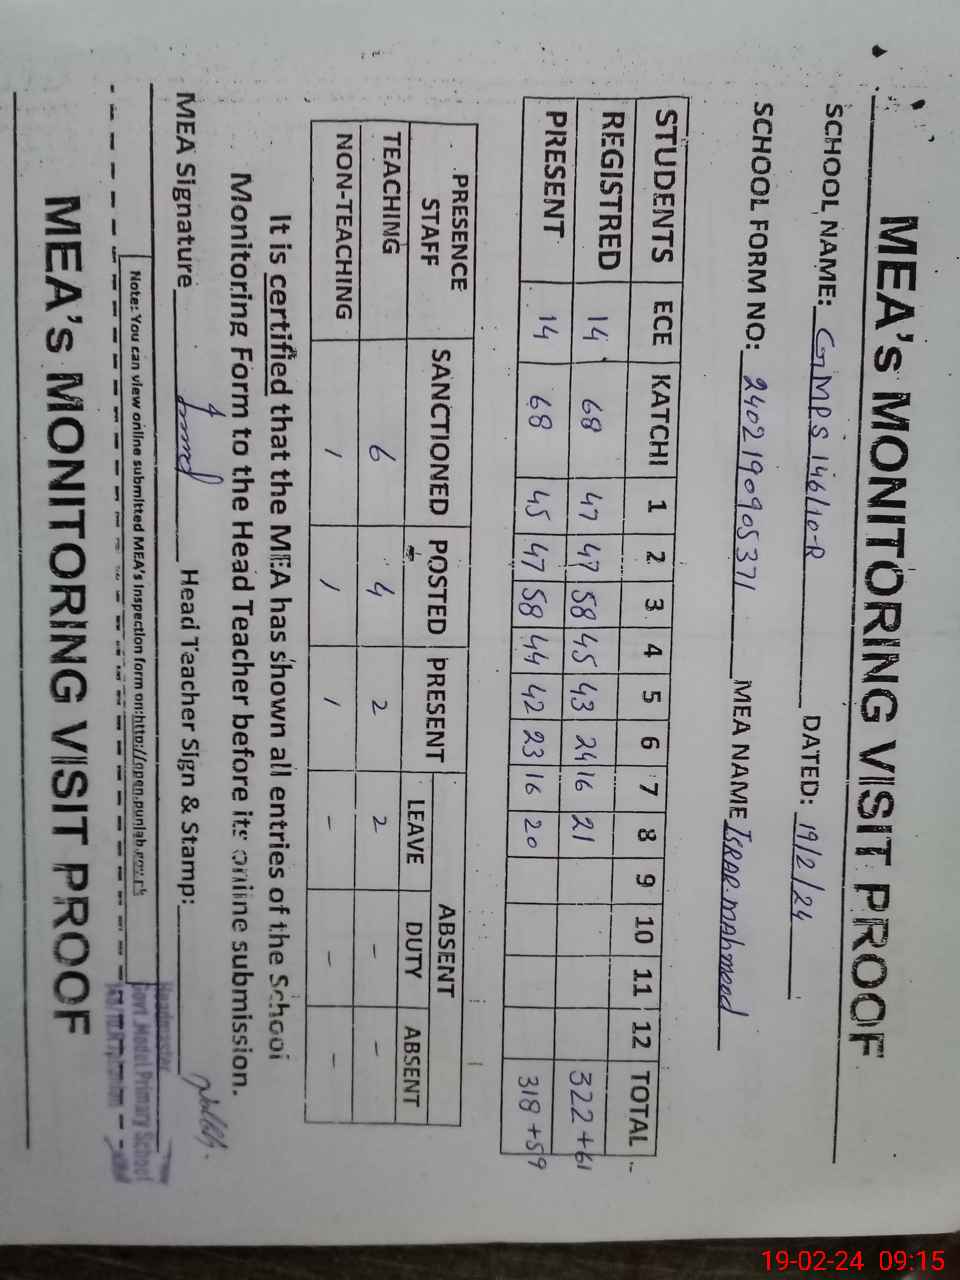 MEA's MONITORING VISIT PROOF
SCHOOL NAME: GMPS 146/10-R DATED: 19/2/24
SCHOOL FORM NO: 2402190905371 MEA NAME Israr Mahmood
STUDENTS ECE KATCHI 1 2 3 4 5 6 7 8 9 10 11 12 TOTAL
REGISTRED 14 68 47 47 58 45 43 24 16 21 322+61
PRESENT 14 68 45 47 58 44 42 23 16 20 318+59
PRESENCE STAFF SANCTIONED POSTED PRESENT ABSENT
LEAVE DUTY ABSENT
TEACHING 6 4 2 2 - -
NON-TEACHING 1 1 1 - - -
It is certified that the MEA has shown all entries of the School
Monitoring Form to the Head Teacher before its online submission.
MEA Signature Head Teacher Sign & Stamp:
Headmaster
Govt. Model Primary School
Note: You can view online submitted MEA's inspection form on:http://open.punjab.gov.pk
MEA's MONITORING VISIT PROOF
19-02-24 09:15